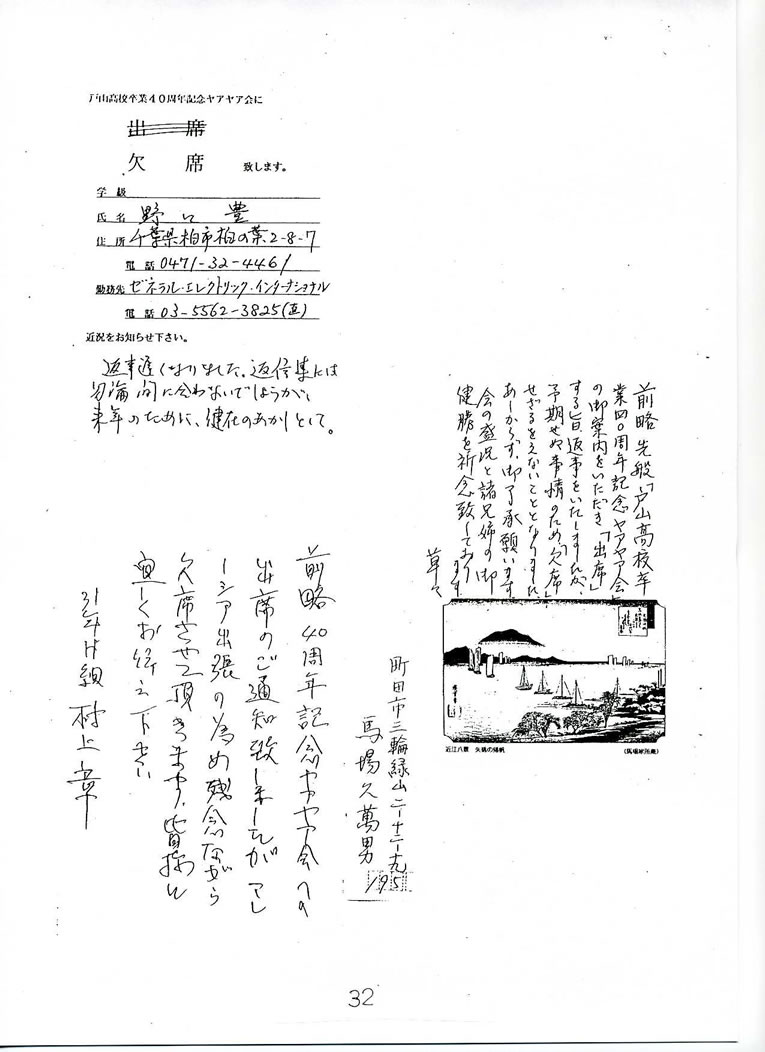 戸山高校卒業40周年記念ヤアヤア会に
出 席
欠 席 致します。
学 級
氏 名 野口 豊
住 所 千葉県柏市柏の葉2-8-7
電 話 0471-32-4461
勤務先 ゼネラル・エレクトリック・インターナショナル
電 話 03-5562-3825(直)
近況をお知らせ下さい。
返事遅くなりました。返信集には
勿論間に合わないでしょうが、
来年のために、健在のあかしとして。
前略 先般「戸山高校卒
業四〇周年記念ヤアヤア会」
の御案内をいただき「出席」
する旨返事をいたしましたが、
予期せぬ事情のため「欠席」
せざるをえないこととなりました
あしからず、御了承願います
会の盛況と諸兄姉の御
健勝を祈念致しており
ます
草々
近江八景 矢橋の帰帆
町田市三輪緑山二-十二-九
馬場久萬男
195
前略 40周年記念ヤアヤア会への
出席のご通知致しましたが マレ
ーシア出張の為め残念ながら
欠席させて頂きます。皆様に
宜しくお伝え下さい
31年H組 村上 章
32